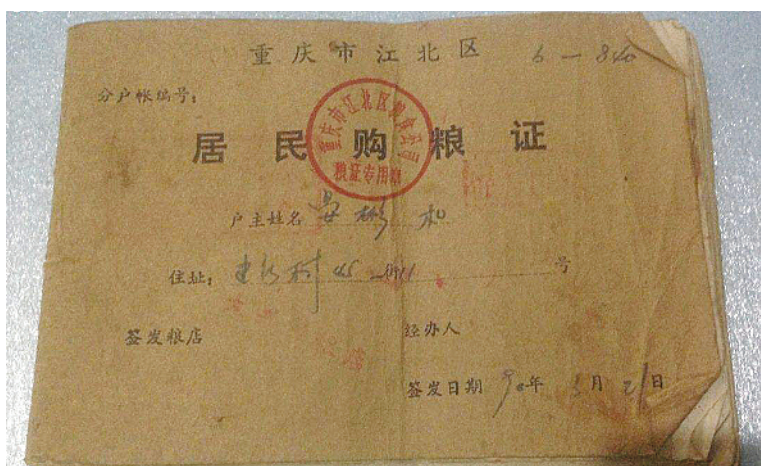 重庆市江北区 6-840
分户帐编号:
居民购粮证
重庆市江北区粮食公司
粮证专用章
户主姓名
住址: 村45 号
签发粮店 经办人
签发日期 90年 月21日